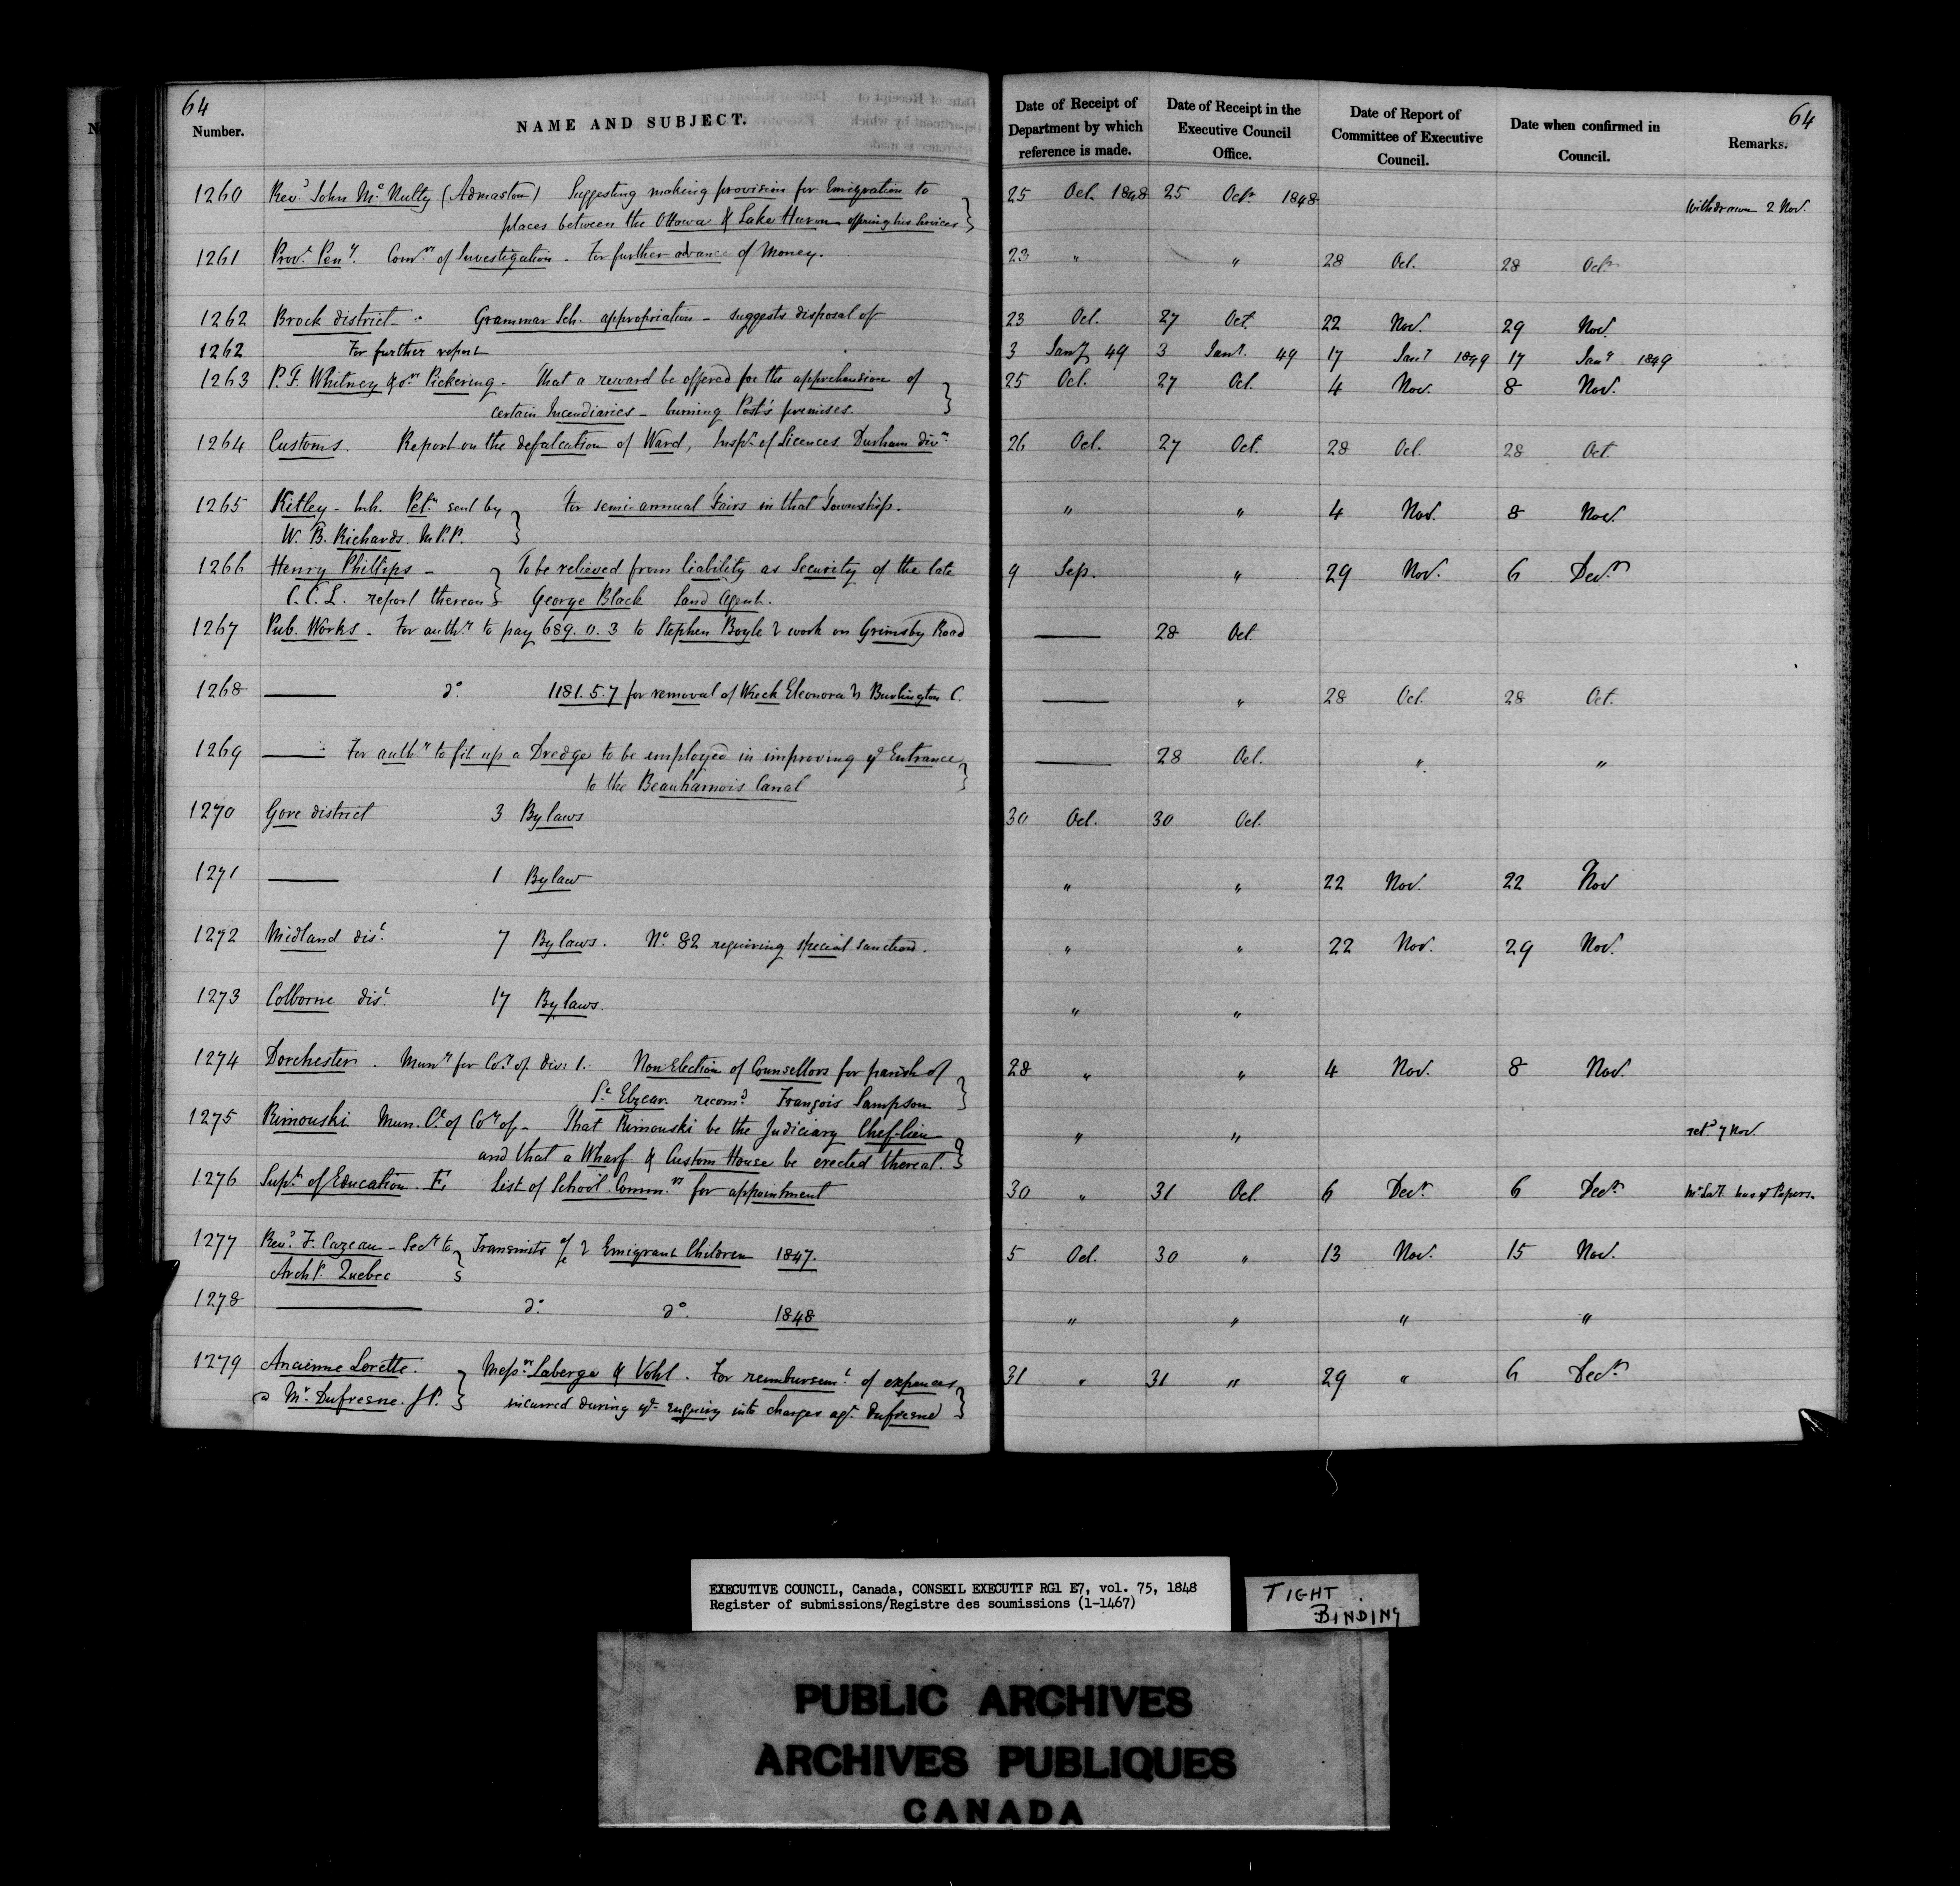 64
Number.
NAME AND SUBJECT.
Date of Receipt of Department by which reference is made.
Date of Receipt in the Executive Council Office.
Date of Report of Committee of Executive Council.
Date when confirmed in Council.
Remarks.
64
1260 Revd. John McNulty (Admaston) Suggesting making provision for Emigration to 25 Oct. 1848 25 Octr. 1848
places between the Ottawa & Lake Huron offering his services } Withdrawn 2 Nov.
1261 Provl. Peny. Comrs. of Investigation - For further advance of Money. 23 " " 28 Oct. 28 Octr
1262 Brock district - Grammar Sch. appropriation - suggests disposal of 23 Oct. 27 Oct. 22 Nov. 29 Nov.
1262 For further report 3 Jany 49 3 Jany. 49 17 Jany 1849 17 Jany 1849
1263 P. F. Whitney & ors Pickering - That a reward be offered for the apprehension of 25 Oct. 27 Oct. 4 Nov. 8 Nov.
certain Incendiaries - burning Post's premises. }
1264 Customs. Report on the defalcation of Ward, Inspr. of Licences Durham divn. 26 Oct. 27 Oct. 28 Oct. 28 Oct
1265 Kitley - Inh. Petn. sent by } For semi-annual Fairs in that Township. " " 4 Nov. 8 Nov.
W. B. Richards M.P.P.
1266 Henry Phillips - } To be relieved from liability as Security of the late 9 Sep. " 29 Nov. 6 Decr
C.C.L. report thereon } George Black Land Agent.
1267 Pub. Works - For authy. to pay 689. 0. 3 to Stephen Boyle & work on Grimsby Road — 28 Oct
1268 — do. 1181. 5. 7 for removal of Wreck Eleonora Burlington C. — " 28 Oct. 28 Oct.
1269 — For authy. to fit up a Dredge to be employed in improving ye Entrance — 28 Oct. " "
to the Beauharnois Canal }
1270 Gore district 3 Bylaws 30 Oct. 30 Oct.
1271 — 1 Bylaw " " 22 Nov. 22 Nov
1272 Midland dist. 7 Bylaws. No. 82 requiring special sanction. " " 22 Nov. 29 Nov.
1273 Colborne dist. 17 Bylaws. " "
1274 Dorchester. Muny for Coy. of div: 1. Non Election of Counsellors for parish of 28 " " 4 Nov. 8 Nov.
St. Elzear recomd. François Sampson }
1275 Rimouski Mun. Cl. of Coy of - That Rimouski be the Judiciary Chef-lieu " " retd. 7 Nov.
and that a Wharf & Custom House be erected thereat. }
1276 Supt. of Education. E. List of School Commrs. for appointment 30 " 31 Oct. 6 Decr. 6 Decr. has ye Papers.
1277 Revd. F. Cazeau - Secy to } Transmits a/c Emigrant Children 1847. 5 Oct. 30 " 13 Nov. 15 Nov.
Archp. Quebec
1278 — do. do. 1848 " " " "
1279 Ancienne Lorette. } Messrs. Laberge & Vohl. For reimbursemt. of expences 31 " 31 " 29 " 6 Decr
Mr. Dufresne. J.P. } incurred during ye enquiry into charges agt. Dufresne }
EXECUTIVE COUNCIL, Canada, CONSEIL EXECUTIF RG1 E7, vol. 75, 1848
Register of submissions/Registre des soumissions (1-1467)
TIGHT BINDING
PUBLIC ARCHIVES
ARCHIVES PUBLIQUES
CANADA